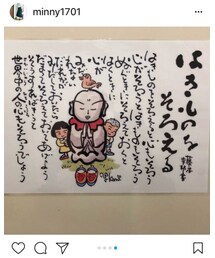 minny1701
はきものを
そろえる
藤本幸邦
はきものをそろえると心もそろう
心がそろうとはきものもそろう
ぬぐときにそろえておくと
はくときに
心が
みだれない
だれかが
みだしておいたら
だまってそろえておいてあげよう
そうすればきっと
世界中の人の心もそろうでしょう